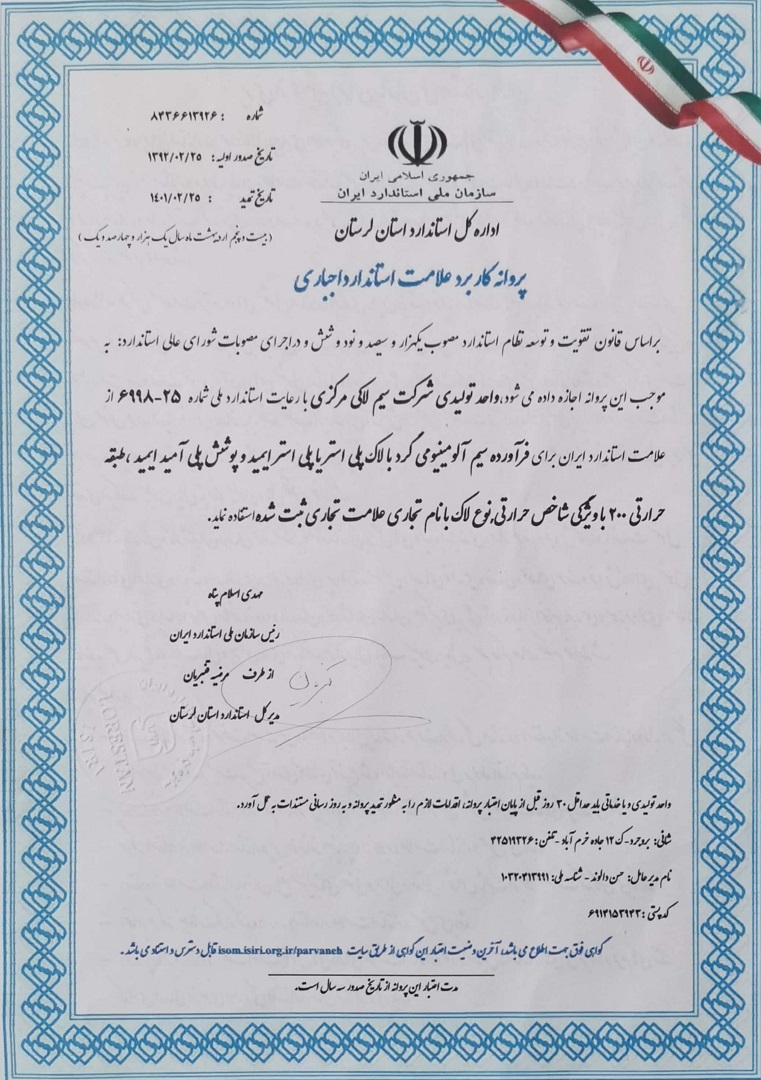 شماره : ۸۴۳۶۶۱۳۹۲۶
تاریخ صدور اولیه: ۱۳۹۲/۰۲/۲۵
تاریخ تمدید : ۱۴۰۱/۰۲/۲۵
(بیست و پنجم اردیبهشت ماه سال یک هزار و چهارصد و یک)
جمهوری اسلامی ایران
سازمان ملی استاندارد ایران
اداره کل استاندارد استان لرستان
پروانه کاربرد علامت استاندارد اجباری
براساس قانون تقویت و توسعه نظام استاندارد مصوب یکهزار و سیصد و نود و شش و در اجرای مصوبات شورای عالی استاندارد: به
موجب این پروانه اجازه داده می شود،واحد تولیدی شرکت سیم لاکی مرکزی با رعایت استاندارد ملی شماره ۲۵-۶۹۹۸ از
علامت استاندارد ایران برای فرآورده سیم آلومینیومی گرد با لاک پلی استر یا پلی استر ایمید و پوشش پلی آمید ایمید ،طبقه
حرارتی ۲۰۰ با ویژگی شاخص حرارتی,نوع لاک با نام تجاری علامت تجاری ثبت شده استفاده نماید.
مهدی اسلام پناه
رئیس سازمان ملی استاندارد ایران
از طرف مرضیه قنبریان
مدیر کل استاندارد استان لرستان
LORESTAN
ISIRI
واحد تولیدی و یا خدماتی باید حداقل ۳۰ روز قبل از پایان اعتبار پروانه، اقدامات لازم را به منظور تمدید پروانه و به روز رسانی مستندات به عمل آورد.
نشانی: بروجرد-ک ۱۲ جاده خرم آباد -تلفن: ۴۲۵۱۹۳۲۶
نام مدیرعامل: حسن دالوند - شناسه ملی: ۱۰۳۲۰۴۱۳۹۹۱
کد پستی : ۶۹۱۴۱۵۳۹۴۳
گواهی فوق جهت اطلاع می باشد، آخرین وضعیت اعتبار این گواهی از طریق سایت isom.isiri.org.ir/parvaneh قابل دسترس و استناد می باشد .
مدت اعتبار این پروانه از تاریخ صدور سه سال است.